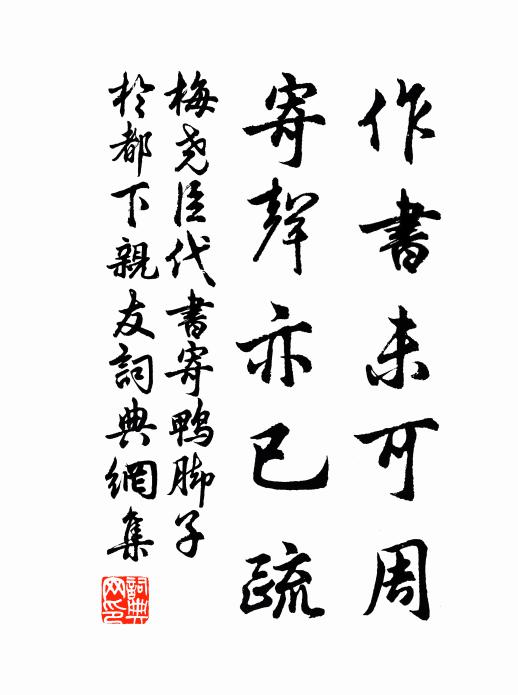 作書未可周
寄聲亦已疏
梅堯臣代書寄鴨脚子
於都下親友詞典網集
詞典網印